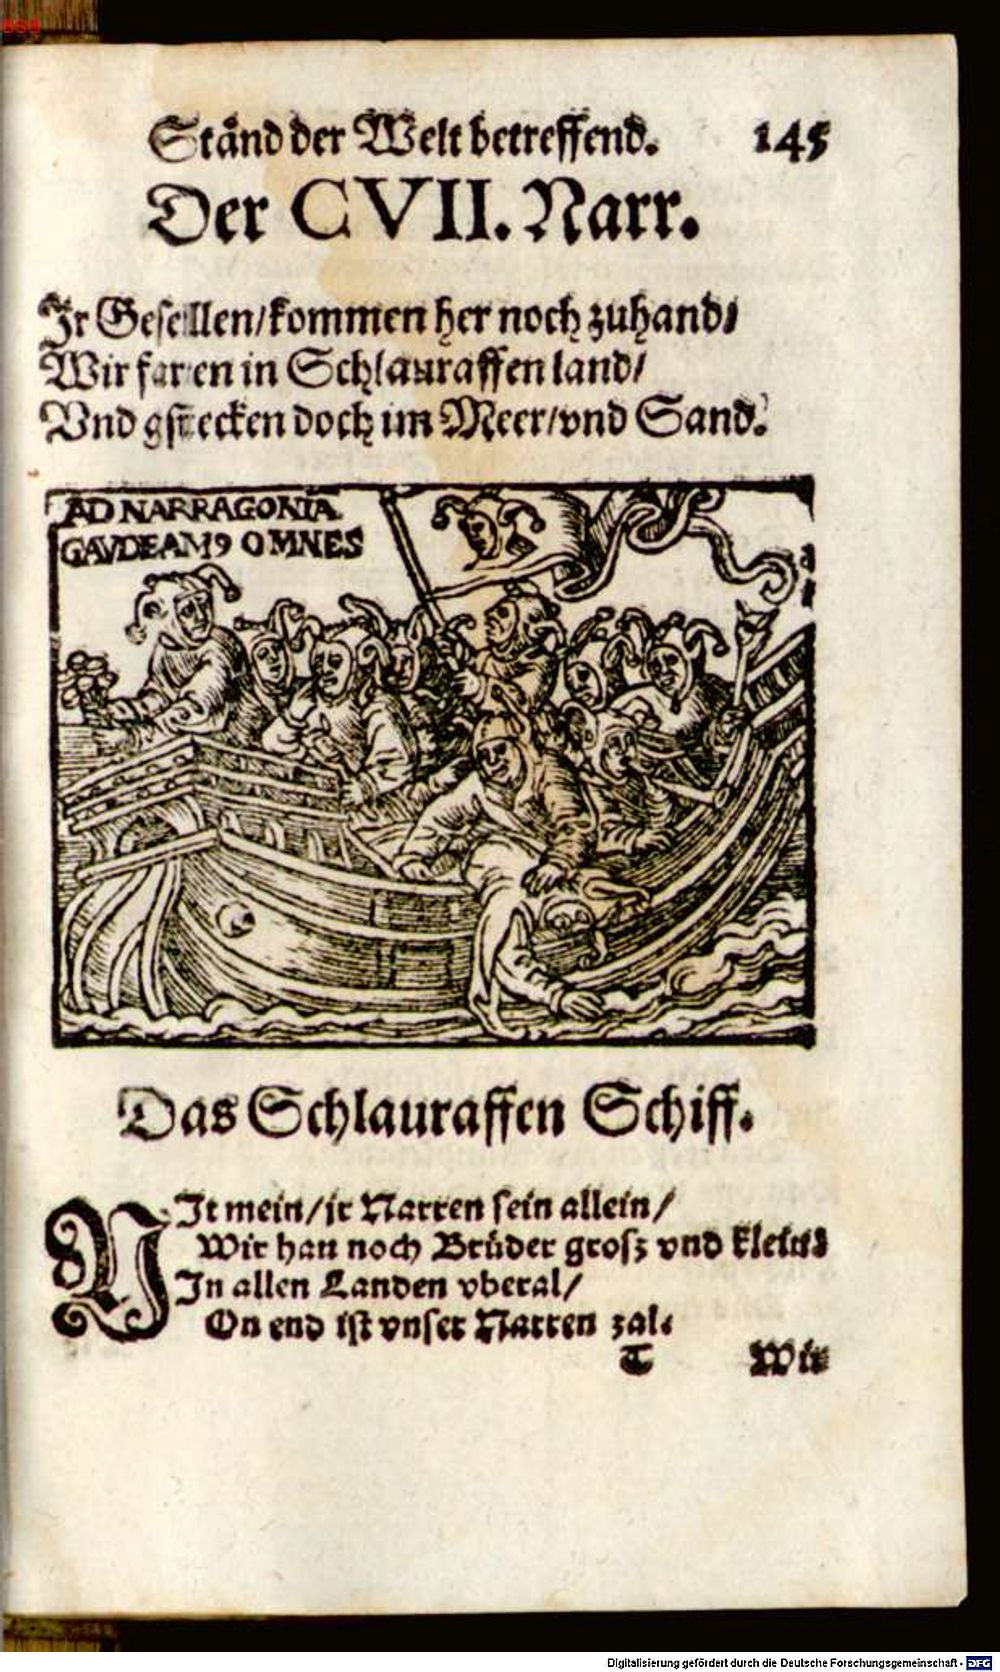 BSB
Stånd der Welt betreffend. 145
Der CVII. Narr.
Jr Gesellen/kommen her noch zuhand/
Wir faren in Schlauraffen land/
Vnd gstecken doch im Meer/vnd Sand.
AD NARRAGONIA
GAVDEAM9 OMNES
Das Schlauraffen Schiff.
NJt mein/jr Narren sein allein/
Wir han noch Brüder grosz vnd klein/
Jn allen Landen vberal/
On end ist vnser Narren zal.
T Wir
Digitalisierung gefördert durch die Deutsche Forschungsgemeinschaft - DFG